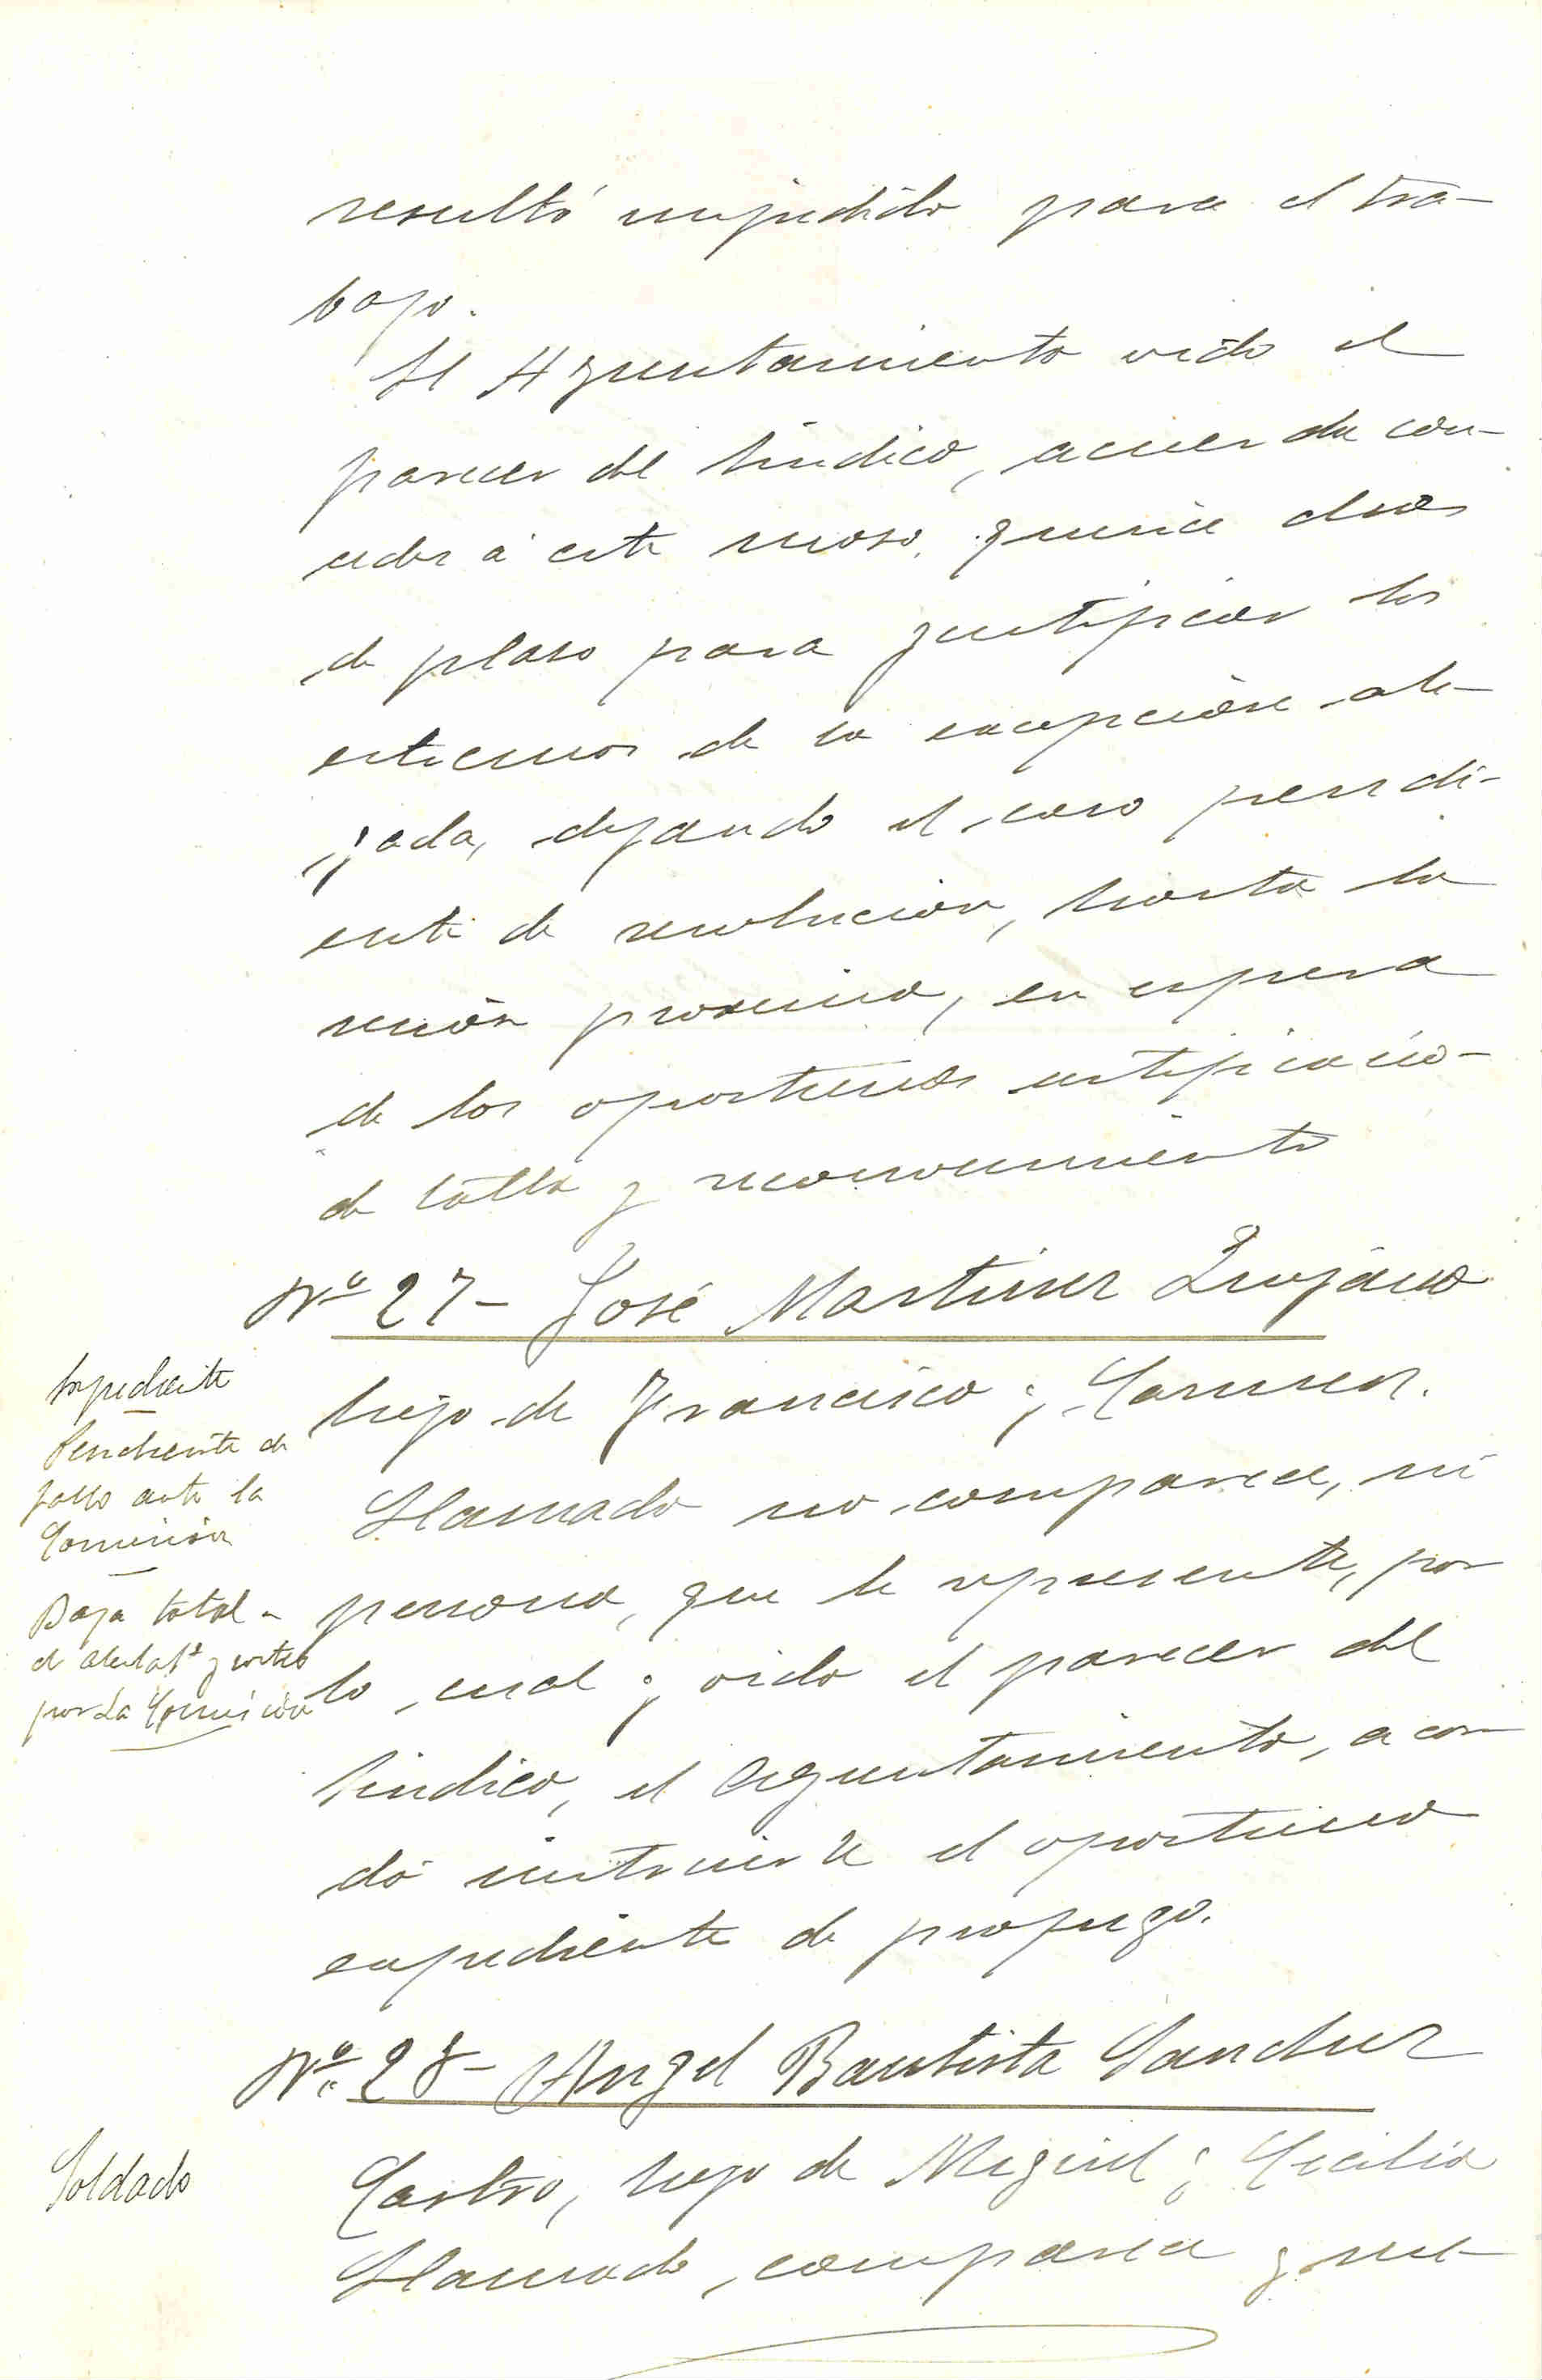 resultó impedido para el tra-
bajo.
El Ayuntamiento oido el
parecer del Sindico, acuerda con-
ceder á este moso, quince dias
de plaso para justificar los
estremos de la excepción ale-
gada, dejando el caso pendi-
ente de resolucion, hasta la
sesión proxima, en espera
de los oportunos certificacio-
de talla y reconocimiento
Nº 27- José Martinez Quijano
hijo de Francisco y Carmen.
Expediente
Pendiente de
fallo ante la
Comisión
Llamado no comparece, ni
persona, que le represente, por
Baja total
el alistatº y sorteo
por la Comisión
lo cual y oido el parecer del
Sindico, el Ayuntamiento, acor
dó instruirle el oportuno
expediente de profugo.
Nº 28- Angel Bautista Sanchez
Soldado
Castro, hijo de Miguel y Cecilia
Llamado, comparece y me-